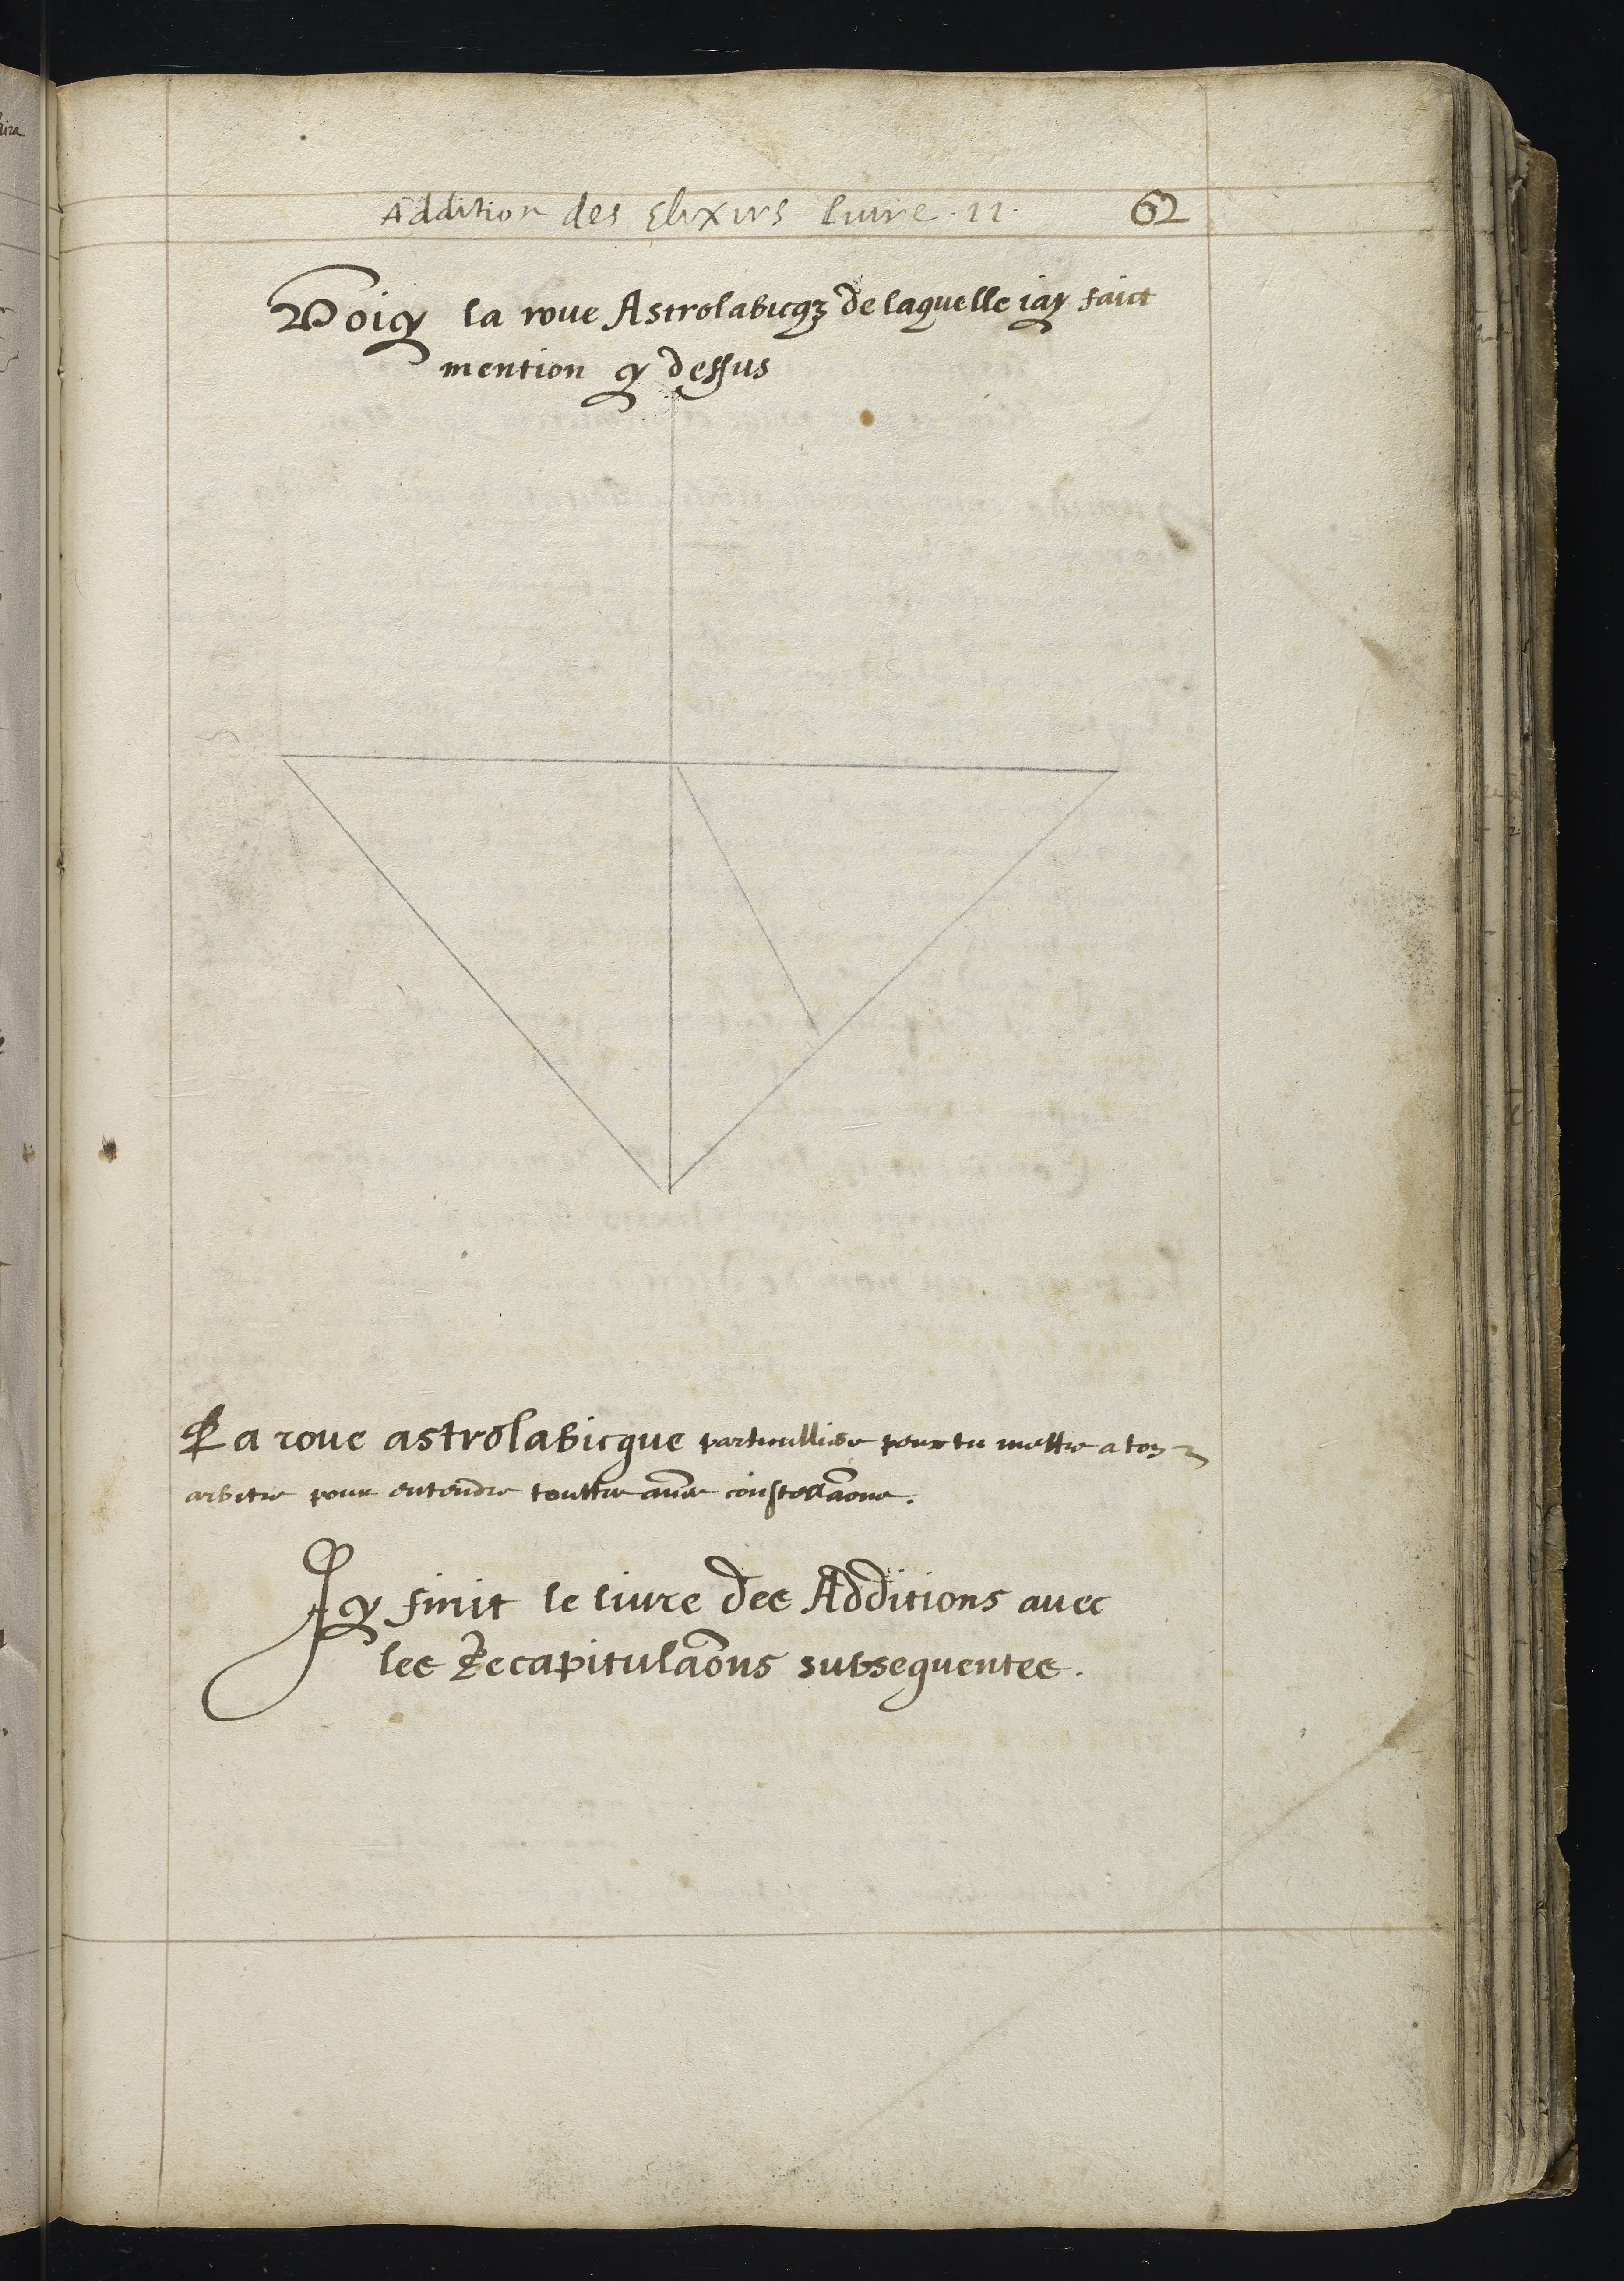 Addition des Elixirs livre .11. 62
Voicy la roue Astrolabicq3 de laquelle iay faict
mention cy dessus
La roue astrolabicque particulliere peux tu mettre a ton
arbitre pour entendre touttes aũes constellaõns.
Icy finit le livre des Additions avec
les Recapitulaõns subsequentes.